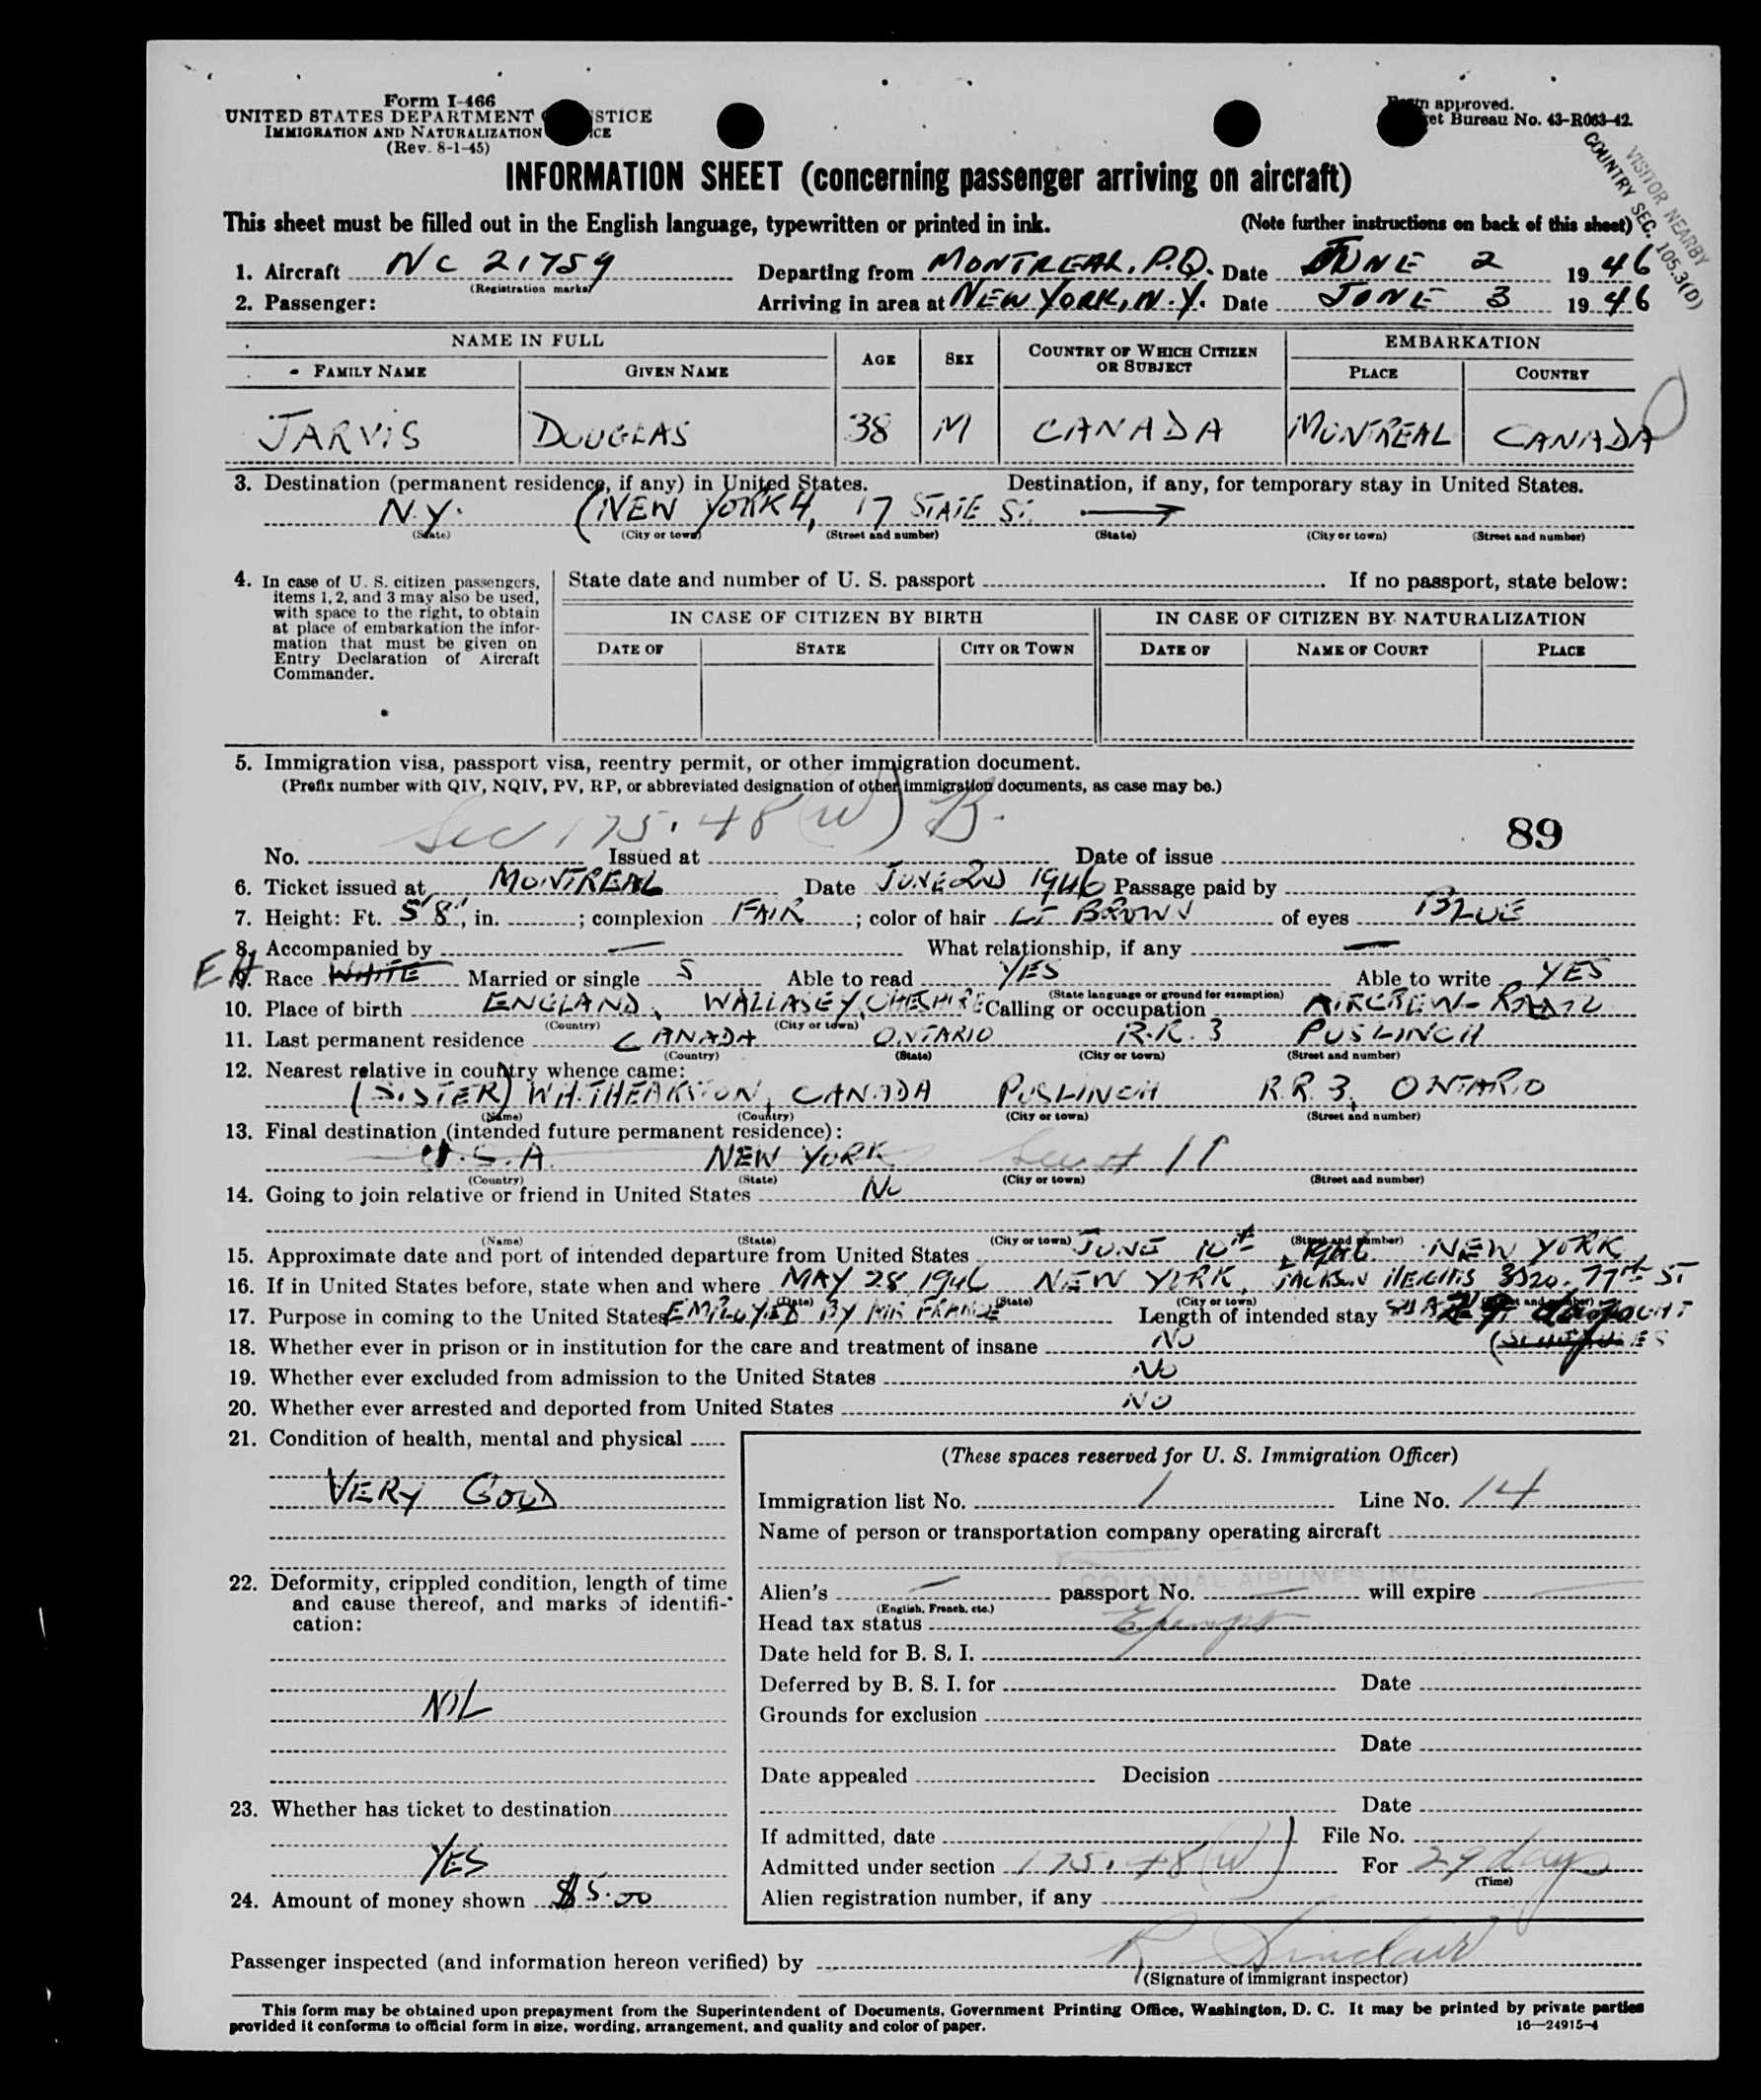 Form I-466
UNITED STATES DEPARTMENT STICE
IMMIGRATION AND NATURALIZATION ICE
(Rev. 8-1-45)
approved.
et Bureau No. 43-R063-42.
VISITOR NEARBY
COUNTRY SEC. 105.3(D)
INFORMATION SHEET (concerning passenger arriving on aircraft)
This sheet must be filled out in the English language, typewritten or printed in ink. (Note further instructions on back of this sheet)
1. Aircraft NC 21759 Departing from MONTREAL, P.Q. Date JUNE 2 1946
(Registration marks)
2. Passenger: Arriving in area at NEW YORK, N.Y. Date JUNE 3 1946
NAME IN FULL AGE SEX COUNTRY OF WHICH CITIZEN OR SUBJECT EMBARKATION
FAMILY NAME GIVEN NAME PLACE COUNTRY
JARVIS DOUGLAS 38 M CANADA MONTREAL CANADA
3. Destination (permanent residence, if any) in United States. Destination, if any, for temporary stay in United States.
N.Y. (NEW YORK 4, 17 STATE ST.
(State) (City or town) (Street and number) (State) (City or town) (Street and number)
4. In case of U. S. citizen passengers, items 1, 2, and 3 may also be used, with space to the right, to obtain at place of embarkation the information that must be given on Entry Declaration of Aircraft Commander.
State date and number of U. S. passport . If no passport, state below:
IN CASE OF CITIZEN BY BIRTH IN CASE OF CITIZEN BY NATURALIZATION
DATE OF STATE CITY OR TOWN DATE OF NAME OF COURT PLACE
5. Immigration visa, passport visa, reentry permit, or other immigration document.
(Prefix number with QIV, NQIV, PV, RP, or abbreviated designation of other immigration documents, as case may be.)
Sec 175.48(W) B.
89
No. Issued at Date of issue
6. Ticket issued at MONTREAL Date JUNE 2ND 1946 Passage paid by
7. Height: Ft. 5'8", in. ; complexion FAIR ; color of hair LT BROWN of eyes BLUE
8. Accompanied by — What relationship, if any —
9. Race WHITE Married or single S Able to read YES Able to write YES
(State language or ground for exemption)
10. Place of birth ENGLAND, WALLASEY, CHESHIRE Calling or occupation AIRCREW-
(Country) (City or town)
11. Last permanent residence CANADA ONTARIO R.R. 3 PUSLINCH
(Country) (State) (City or town) (Street and number)
12. Nearest relative in country whence came:
(SISTER) CANADA PUSLINCH R.R. 3, ONTARIO
(Name) (Country) (City or town) (Street and number)
13. Final destination (intended future permanent residence):
U.S.A. NEW YORK
(Country) (State) (City or town) (Street and number)
14. Going to join relative or friend in United States NO
(Name) (State) (City or town) (Street and number)
15. Approximate date and port of intended departure from United States JUNE 10th, 1946 NEW YORK
16. If in United States before, state when and where MAY 28, 1946 NEW YORK, JACKSON HEIGHTS 3520. 77th ST
(Date) (State) (City or town) (Street and number)
17. Purpose in coming to the United States EMPLOYED BY AIR FRANCE Length of intended stay
18. Whether ever in prison or in institution for the care and treatment of insane NO
19. Whether ever excluded from admission to the United States NO
20. Whether ever arrested and deported from United States NO
21. Condition of health, mental and physical
VERY GOOD
(These spaces reserved for U. S. Immigration Officer)
Immigration list No. 1 Line No. 14
Name of person or transportation company operating aircraft
COLONIAL AIRLINES INC.
22. Deformity, crippled condition, length of time and cause thereof, and marks of identification:
NIL
Alien's — passport No. — will expire —
(English, French, etc.)
Head tax status Exempt
Date held for B. S. I.
Deferred by B. S. I. for Date
Grounds for exclusion
Date
Date appealed Decision
23. Whether has ticket to destination
YES
Date
If admitted, date File No.
Admitted under section 175.48(W) For 29 days
(Time)
24. Amount of money shown $5.00
Alien registration number, if any
Passenger inspected (and information hereon verified) by R Sinclair
(Signature of immigrant inspector)
This form may be obtained upon prepayment from the Superintendent of Documents, Government Printing Office, Washington, D. C. It may be printed by private parties
provided it conforms to official form in size, wording, arrangement, and quality and color of paper. 16—24915-4